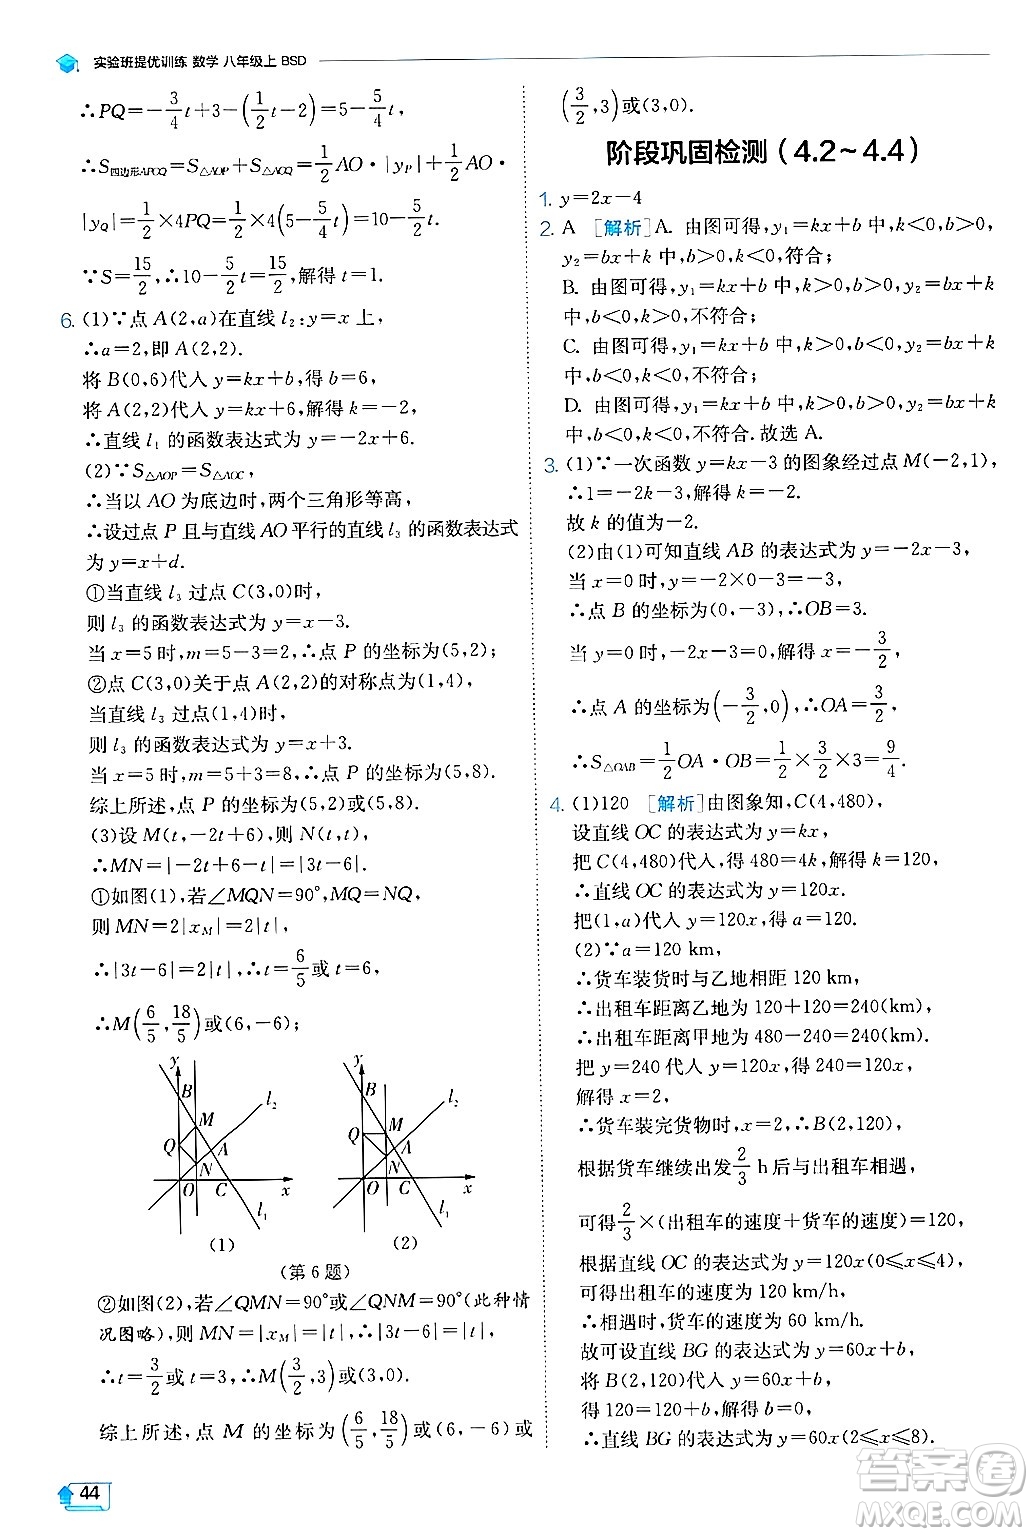 实验班提优训练 数学 八年级上 BSD
∴PQ=−3/4t+3−(1/2t−2)=5−5/4t,
∴S四边形APOQ=S△AOP+S△AOQ=1/2AO·|yP|+1/2AO·
|yQ|=1/2×4PQ=1/2×4(5−5/4t)=10−5/2t.
∵S=15/2,∴10−5/2t=15/2,解得 t=1.
6. (1)∵点 A(2,a)在直线 l₂:y=x 上,
∴a=2,即 A(2,2).
将 B(0,6)代入 y=kx+b,得 b=6,
将 A(2,2)代入 y=kx+6,解得 k=−2,
∴直线 l₁ 的函数表达式为 y=−2x+6.
(2)∵S△AOP=S△AOC,
∴当以 AO 为底边时,两个三角形等高,
∴设过点 P 且与直线 AO 平行的直线 l₃ 的函数表达式
为 y=x+d.
①当直线 l₃ 过点 C(3,0)时,
则 l₃ 的函数表达式为 y=x−3.
当 x=5 时,m=5−3=2,∴点 P 的坐标为(5,2);
②点 C(3,0)关于点 A(2,2)的对称点为(1,4),
当直线 l₃ 过点(1,4)时,
则 l₃ 的函数表达式为 y=x+3.
当 x=5 时,m=5+3=8,∴点 P 的坐标为(5,8).
综上所述,点 P 的坐标为(5,2)或(5,8).
(3)设 M(t,−2t+6),则 N(t,t),
∴MN=|−2t+6−t|=|3t−6|.
①如图(1),若∠MQN=90°,MQ=NQ,
则 MN=2|xM|=2|t|,
∴|3t−6|=2|t|,∴t=6/5或 t=6,
∴M(6/5,18/5)或(6,−6);
y B M Q A N O C x l₂ l₁
(1)
y B Q M A N O C x l₂ l₁
(2)
(第 6 题)
②如图(2),若∠QMN=90°或∠QNM=90°(此种情
况图略),则 MN=|xM|,∴|3t−6|=|t|,
∴t=3/2或 t=3,∴M(3/2,3)或(3,0).
综上所述,点 M 的坐标为(6/5,18/5)或(6,−6)或
(3/2,3)或(3,0).
阶段巩固检测(4.2~4.4)
1. y=2x−4
2. A [解析]A. 由图可得,y₁=kx+b 中,k<0,b<0,
y₂=bx+k 中,b>0,k<0,不符合;
B. 由图可得,y₁=kx+b 中,k>0,b>0,y₂=bx+k
中,b<0,k>0,不符合;
C. 由图可得,y₁=kx+b 中,k>0,b<0,y₂=bx+k
中,b<0,k<0,不符合;
D. 由图可得,y₁=kx+b 中,k>0,b>0,y₂=bx+k
中,b<0,k<0,不符合.故选 A.
3. (1)∵一次函数 y=kx−3 的图象经过点 M(−2,1),
∴1=−2k−3,解得 k=−2.
故 k 的值为−2.
(2)由(1)可知直线 AB 的表达式为 y=−2x−3,
当 x=0 时,y=−2×0−3=−3,
∴点 B 的坐标为(0,−3),∴OB=3.
当 y=0 时,−2x−3=0,解得 x=−3/2,
∴点 A 的坐标为(−3/2,0),∴OA=3/2,
∴S△OAB=1/2OA·OB=1/2×3/2×3=9/4.
4. (1)120 [解析]由图象知,C(4,480),
设直线 OC 的表达式为 y=kx,
把 C(4,480)代入,得 480=4k,解得 k=120,
∴直线 OC 的表达式为 y=120x.
把(1,a)代入 y=120x,得 a=120.
(2)∵a=120 km,
∴货车装货时与乙地相距 120 km,
∴出租车距离乙地为 120+120=240(km),
∴出租车距离甲地为 480−240=240(km).
把 y=240 代入 y=120x,得 240=120x,
解得 x=2,
∴货车装完货物时,x=2,则 B(2,120),
根据货车继续出发2/3 h后与出租车相遇,
可得2/3×(出租车的速度+货车的速度)=120,
根据直线 OC 的表达式为 y=120x(0≤x≤4),
可得出租车的速度为 120 km/h,
∴相遇时,货车的速度为 60 km/h.
故可设直线 BG 的表达式为 y=60x+b,
将 B(2,120)代入 y=60x+b,
得 120=120+b,解得 b=0,
∴直线 BG 的表达式为 y=60x(2≤x≤8).
44
答案圈
MXQE.COM